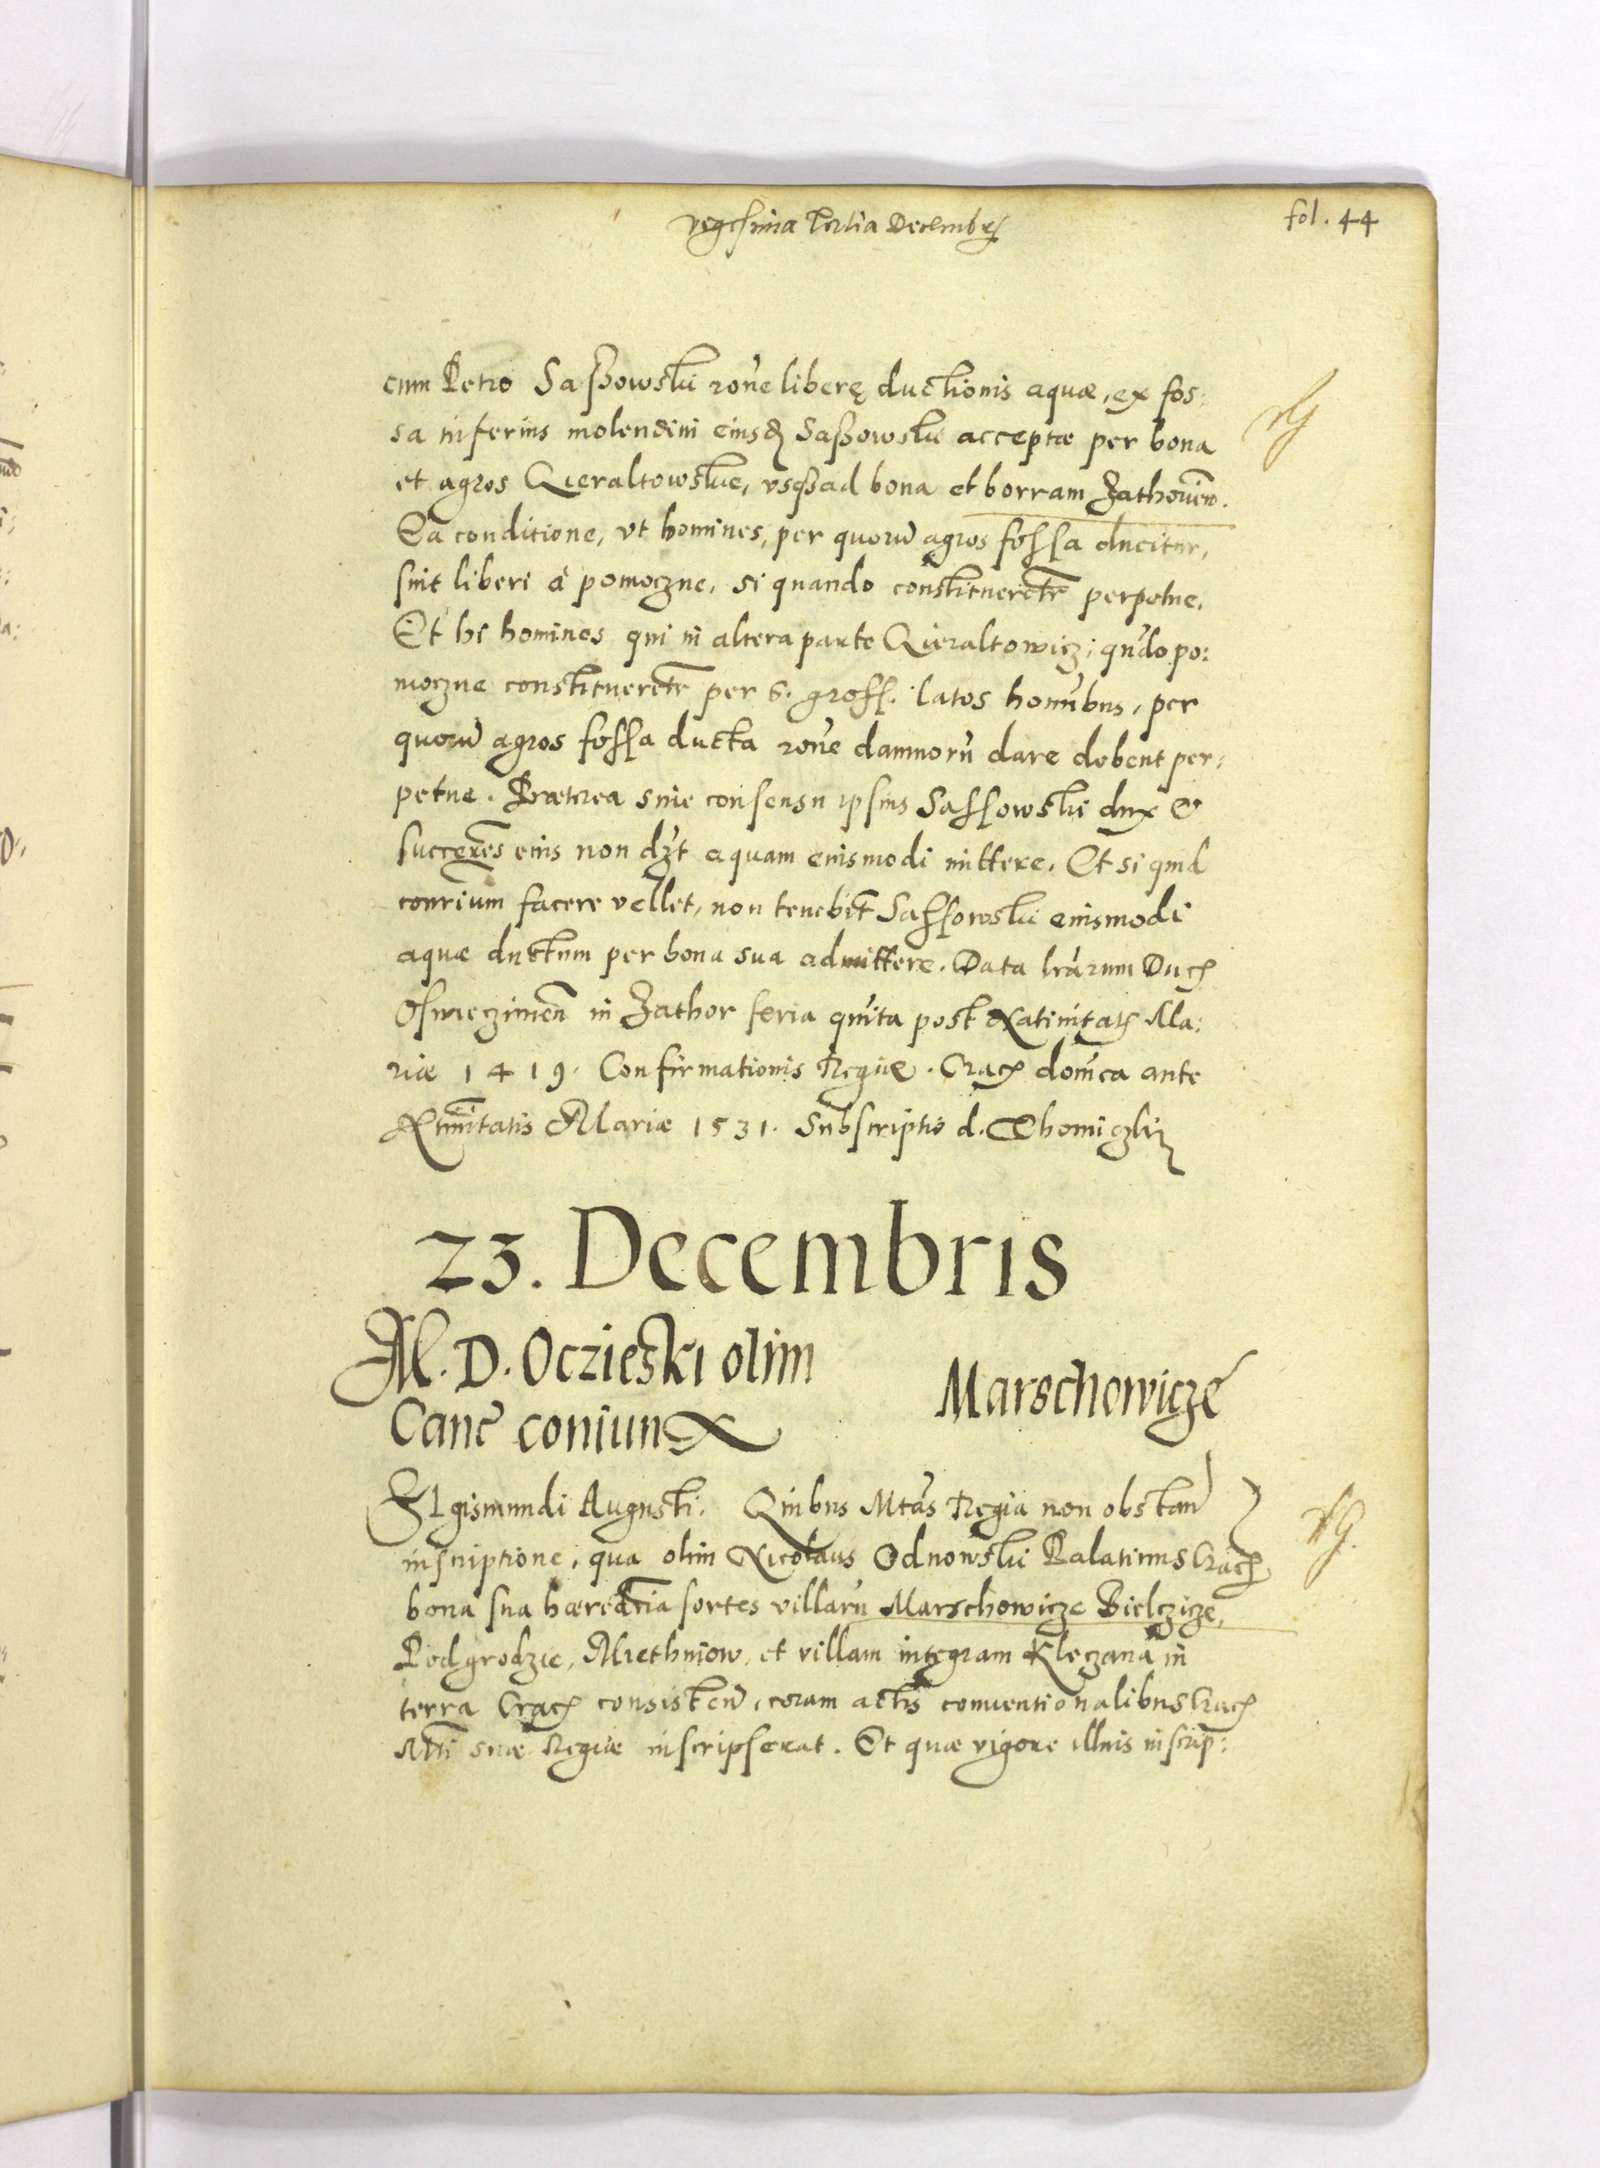 vigesima tertia Decembris
fol. 44
cum Petro Saßowski rōne liberę ductionis aquæ, ex fos:
sa inferius molendini eiusd Saßowski acceptæ per bona
et agros Gieraltowskie, vsq ad bona et borram Zathorien̄.
Ea conditione, vt homines, per quorū agros fossa ducitur,
sint liberi à pomoczne, si quando constitueretr̄ perpetue.
Et hi homines qui in altera parte Gieraltowicz, qn̄do po:
moczne constitueretr̄ per 6. gross. latos homībus, per
quorū agros fossa ducta rōne damnorū dare debent per:
petue. Præterea sine consensu ipsius Sassowski dux &
succeres̄ eius non dz̄t aquam eiusmodi mittere. Et si quid
conrīum facere vellet, non tenebit̄ Sassowski eiusmodi
aquæ ductum per bona sua admittere. Data lrārum Ducis
Oswieczimen̄ in Zathor feria quīta post Natiuitatis Ma:
riæ 1419. Confirmationis Regiæ. Crac domīca ante
Ntiuītatis Mariæ 1531. Subscriptio d. Thomiczki
23. Decembris
M. D. Oczieski olim
Canc̄ coniunx
Marschowicze
Sigismundi Augusti. Quibus Mtās Regia non obstan̄
inscriptione, qua olim Nicolaus Odnowski Palatinus Crac
bona sua hæredār̄ia sortes villarū Marschowicze Bielczicze,
Podgrodzie, Miethniow, et villam integram Kleczana in
terra Crac consisten̄, coram actis conuentionalibus Crac
Mtī suæ Regiæ inscripserat. Et quæ vigore illius inscrip̄: